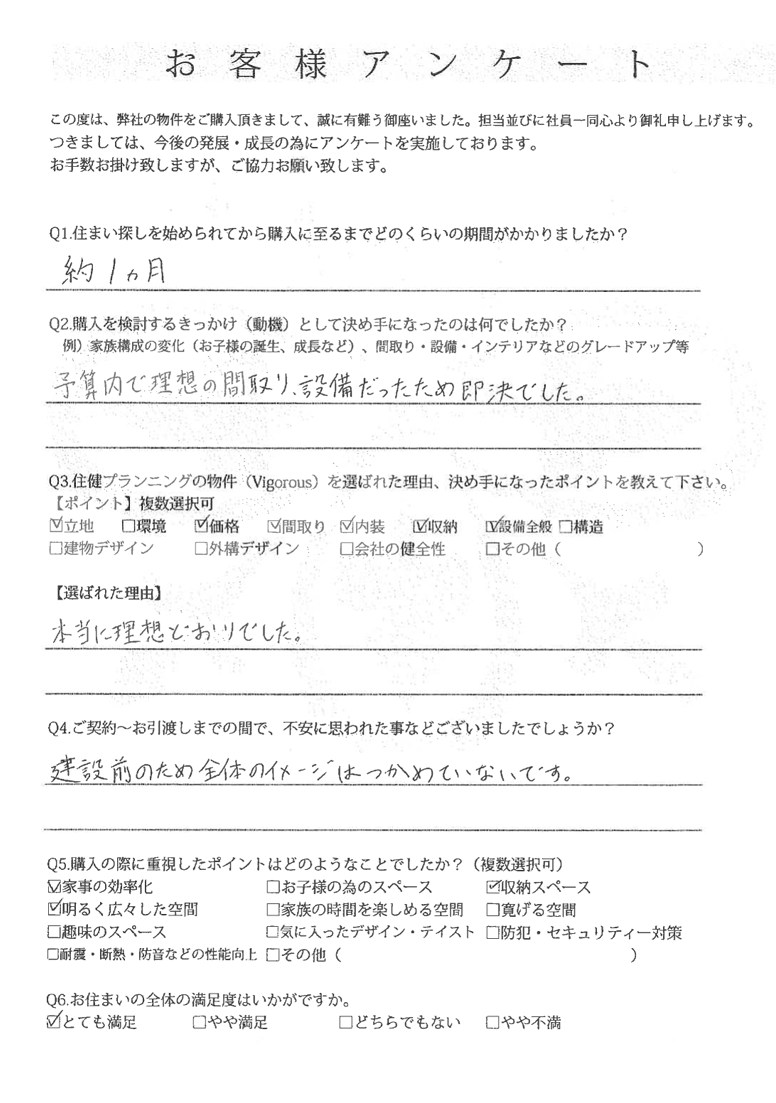 お客様アンケート
この度は、弊社の物件をご購入頂きまして、誠に有難う御座いました。担当並びに社員一同心より御礼申し上げます。
つきましては、今後の発展・成長の為にアンケートを実施しております。
お手数お掛け致しますが、ご協力お願い致します。
Q1.住まい探しを始められてから購入に至るまでどのくらいの期間がかかりましたか？
約1ヵ月
Q2.購入を検討するきっかけ（動機）として決め手になったのは何でしたか？
例）家族構成の変化（お子様の誕生、成長など）、間取り・設備・インテリアなどのグレードアップ等
予算内で理想の間取り、設備だったため即決でした。
Q3.住健プランニングの物件（Vigorous）を選ばれた理由、決め手になったポイントを教えて下さい。
【ポイント】複数選択可
☑立地 ☐環境 ☑価格 ☑間取り ☑内装 ☑収納 ☑設備全般 ☐構造
☐建物デザイン ☐外構デザイン ☐会社の健全性 ☐その他（ ）
【選ばれた理由】
本当に理想どおりでした。
Q4.ご契約～お引渡しまでの間で、不安に思われた事などございましたでしょうか？
建設前のため全体のイメージはつかめていないです。
Q5.購入の際に重視したポイントはどのようなことでしたか？（複数選択可）
☑家事の効率化 ☐お子様の為のスペース ☑収納スペース
☑明るく広々した空間 ☐家族の時間を楽しめる空間 ☐寛げる空間
☐趣味のスペース ☐気に入ったデザイン・テイスト ☐防犯・セキュリティー対策
☐耐震・断熱・防音などの性能向上 ☐その他（ ）
Q6.お住まいの全体の満足度はいかがですか。
☑とても満足 ☐やや満足 ☐どちらでもない ☐やや不満